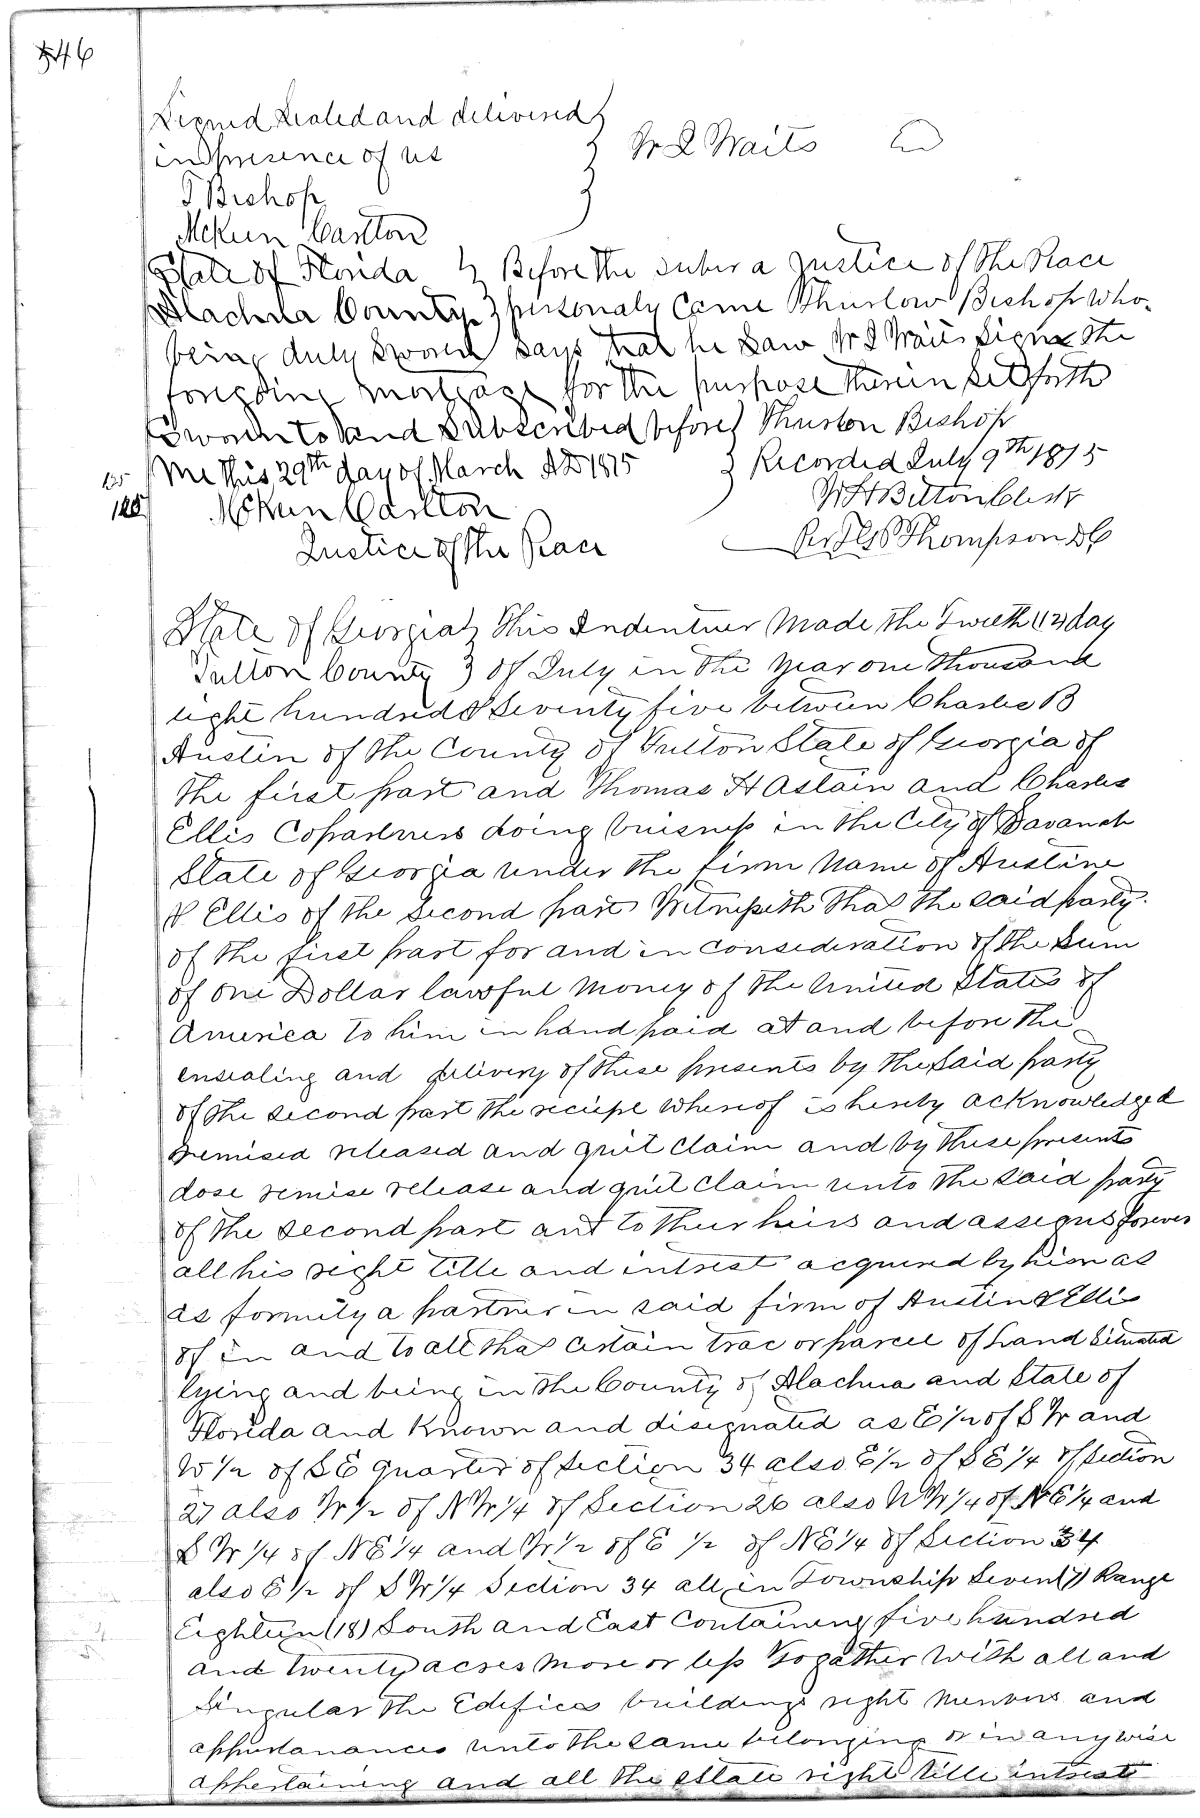 546
Signed Sealed and delivered }
in presence of us } W I Waits
T Bishop
McKeen Carlton
State of Florida } Before the subser a Justice of the Peace
Alachua County } personaly Came Thurlow Bishop who
being duly sworn says that he saw W I Waits Signe the
foregoing mortgage for the purpose therein Set forth
Sworn to and Subscribed before } Thurlow Bishop
Me this 29th day of March AD 1875 } Recorded July 9th 1875
125
125
McKeen Carlton W H Belton Clerk
Justice of the Peace Per J G Thompson D C
State of Georgia } This Indentuer Made the Twelth (12) day
Fulton County } of July in the year one thousand
eight hundred & Seventy five between Charles B
Austin of the County of Fulton State of Georgia of
the first part and Thomas H Astain and Charles
Ellis Copartners doing buisness in the City of Savanah
State of Georgia under the firm Name of Austine
& Ellis of the Second part Witnesseth that the said party
of the first part for and in consideration of the Sum
of one Dollar lawful money of the United States of
America to him in hand paid at and before the
ensealing and delivery of these presents by the said party
of the second part the reciept whereof is hereby acknowledged
remised released and quit claim and by these presents
dose remise release and quit claim unto the said party
of the second part and to their heirs and assigns forever
all his right title and intrest acquired by him as
as formily a partner in said firm of Austin & Ellis
of in and to all that certain trac or parcel of Land Situated
lying and being in the County of Alachua and State of
Florida and Known and disignated as E 1/2 of S W and
W 1/2 of S E quarter of section 34 also E 1/2 of S E 1/4 of Section
27 also W 1/2 of N W 1/4 of Section 26 also N W 1/4 of N E 1/4 and
S W 1/4 of N E 1/4 and W 1/2 of E 1/2 of N E 1/4 of Section 34
also E 1/2 of S W 1/4 Section 34 all in Township Seven (7) Range
Eighteen (18) South and East Containing five hundred
and twenty acres more or less Togather with all and
Singular the Edifices buildings right members and
appurtanances unto the same belonging or in any wise
appertaining and all the estate right title intrest